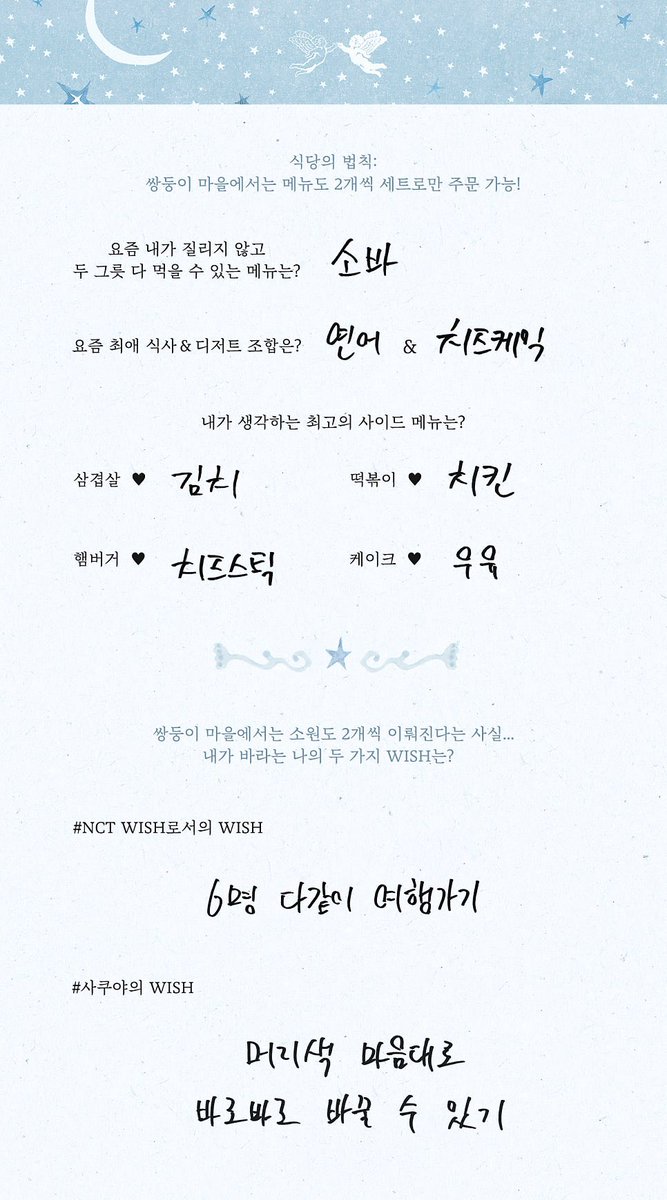 식당의 법칙:
쌍둥이 마을에서는 메뉴도 2개씩 세트로만 주문 가능!
요즘 내가 질리지 않고
두 그릇 다 먹을 수 있는 메뉴는?
소바
요즘 최애 식사 & 디저트 조합은?
연어 & 치즈케익
내가 생각하는 최고의 사이드 메뉴는?
삼겹살 ♥ 김치
떡볶이 ♥ 치킨
햄버거 ♥ 치즈스틱
케이크 ♥ 우유
쌍둥이 마을에서는 소원도 2개씩 이뤄진다는 사실...
내가 바라는 나의 두 가지 WISH는?
#NCT WISH로서의 WISH
6명 다같이 여행가기
#사쿠야의 WISH
머리색 마음대로
바로바로 바꿀 수 있기